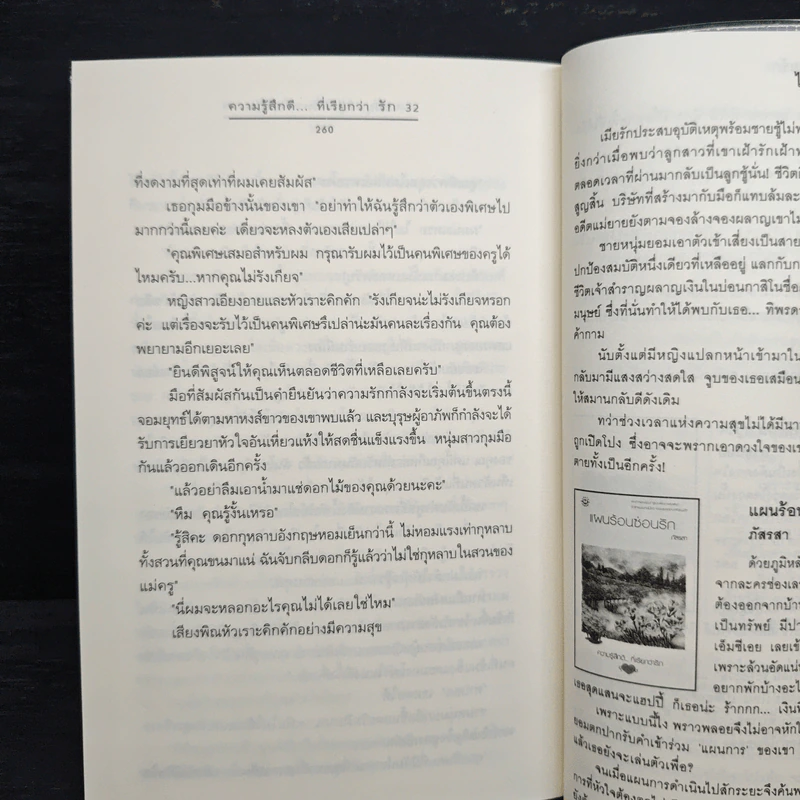 ความรู้สึกดี... ที่เรียกว่า รัก 32
260
ที่งดงามที่สุดเท่าที่ผมเคยสัมผัส"
เธอกุมมือข้างนั้นของเขา "อย่าทำให้ฉันรู้สึกว่าตัวเองพิเศษไป
มากกว่านี้เลยค่ะ เดี๋ยวจะหลงตัวเองเสียเปล่าๆ"
"คุณพิเศษเสมอสำหรับผม กรุณารับผมไว้เป็นคนพิเศษของครูได้
ไหมครับ...หากคุณไม่รังเกียจ"
หญิงสาวเอียงอายและหัวเราะคิกคัก "รังเกียจน่ะไม่รังเกียจหรอก
ค่ะ แต่เรื่องจะรับไว้เป็นคนพิเศษรึเปล่าน่ะมันคนละเรื่องกัน คุณต้อง
พยายามอีกเยอะเลย"
"ยินดีพิสูจน์ให้คุณเห็นตลอดชีวิตที่เหลือเลยครับ"
มือที่สัมผัสกันเป็นคำยืนยันว่าความรักกำลังจะเริ่มต้นขึ้นตรงนี้
จอมยุทธ์ได้ตามหาหงส์ขาวของเขาพบแล้ว และบุรุษผู้อาภัพก็กำลังจะได้
รับการเยียวยาหัวใจอันเหี่ยวแห้งให้สดชื่นแข็งแรงขึ้น หนุ่มสาวกุมมือ
กันแล้วออกเดินอีกครั้ง
"แล้วอย่าลืมเอาน้ำมาแช่ดอกไม้ของคุณด้วยนะคะ"
"หึม คุณรู้งั้นเหรอ"
"รู้สิคะ ดอกกุหลาบอังกฤษหอมเย็นกว่านี้ ไม่หอมแรงเท่ากุหลาบ
ทั้งสวนที่คุณขนมาแน่ ฉันจับกลีบดอกก็รู้แล้วว่าไม่ใช่กุหลาบในสวนของ
แม่ครู"
"นี่ผมจะหลอกอะไรคุณไม่ได้เลยใช่ไหม"
เสียงพิณหัวเราะคิกคักอย่างมีความสุข
เมียรักประสบอุบัติเหตุพร้อมชายชู้ไม่พ
ยิ่งกว่าเมื่อพบว่าลูกสาวที่เขาเฝ้ารักเฝ้า
ตลอดเวลาที่ผ่านมากลับเป็นลูกชู้นั่น! ชีวิต
สูญสิ้น บริษัทที่สร้างมากับมือก็แทบล้มละ
อดีตแม่ยายยังตามจองล้างจองผลาญเขาไม่
ชายหนุ่มยอมเอาตัวเข้าเสี่ยงเป็นสาย
ปกป้องสมบัติหนึ่งเดียวที่เหลืออยู่ แลกกับก
ชีวิตเจ้าสำราญผลาญเงินในบ่อนกาสิโนชื่อ
มนุษย์ ซึ่งที่นั่นทำให้ได้พบกับเธอ... ทิพรด
ค้ากาม
นับตั้งแต่มีหญิงแปลกหน้าเข้ามาใน
กลับมามีแสงสว่างสดใส จูบของเธอเสมือน
ให้สมานกลับดีดังเดิม
ทว่าช่วงเวลาแห่งความสุขไม่ได้มีนา
ถูกเปิดโปง ซึ่งอาจจะพรากเอาดวงใจของเข
ตายทั้งเป็นอีกครั้ง!
แผนร้อนซ่อนรัก
ภัสรสา
ความรู้สึกดี... ที่เรียกว่ารัก
แผนร้อน
ภัสรสา
ด้วยภูมิหลั
จากละครช่องเล
ต้องออกจากบ้าน
เป็นทรัพย์ มีปา
เอ็มซีเอย เลยเข้
เพราะล้วนอัดแน่น
อยากพักบ้างอะไร
เธอสุดแสนจะแฮปปี้ ก็เธอน่ะ ร้ากกก... เงินที่
เพราะแบบนี้ไง พราวพลอยจึงไม่อาจหักใ
ยอมตกปากรับคำเข้าร่วม 'แผนการ' ของเขา
แล้วเธอยังจะเล่นตัวเพื่อ?
จนเมื่อแผนการดำเนินไปสักระยะจึงค้นพ
การที่หัวใจต้อง